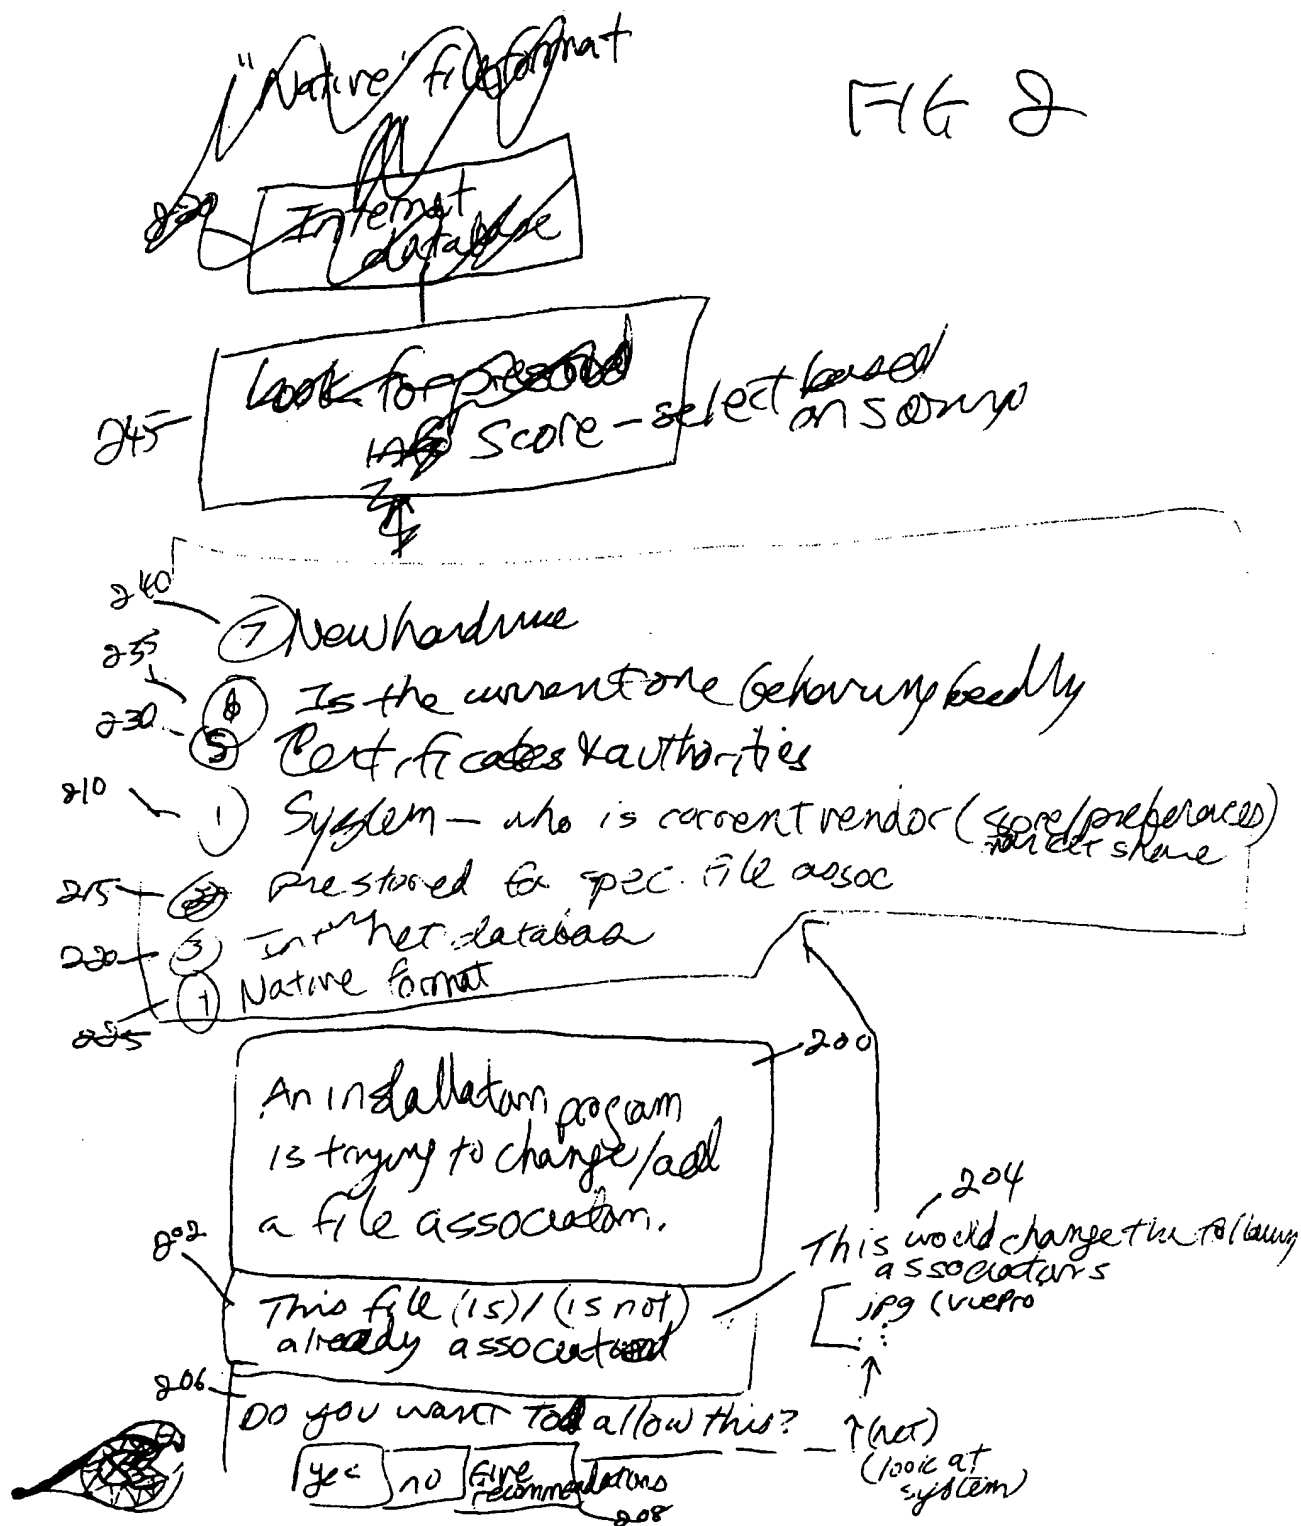 "Native" file format
FIG 2
220
Internet
database
245
Look for prestored
info Score - select based
on scoring
240
7 New hardware
235
6 Is the current one behaving badly
230
5 Certificates & authorities
210
1 System - who is current vendor (score/preferences)
market share
215
prestored for spec. file assoc
220
3 Internet database
Native format
225
200
An installation program
is trying to change/add
a file association.
202
204
This would change the following
associations
jpg (vuepro
This file (is)/(is not)
already associated
206
Do you want to allow this?
(net)
(look at
system)
yes
no
Give
recommendations
208